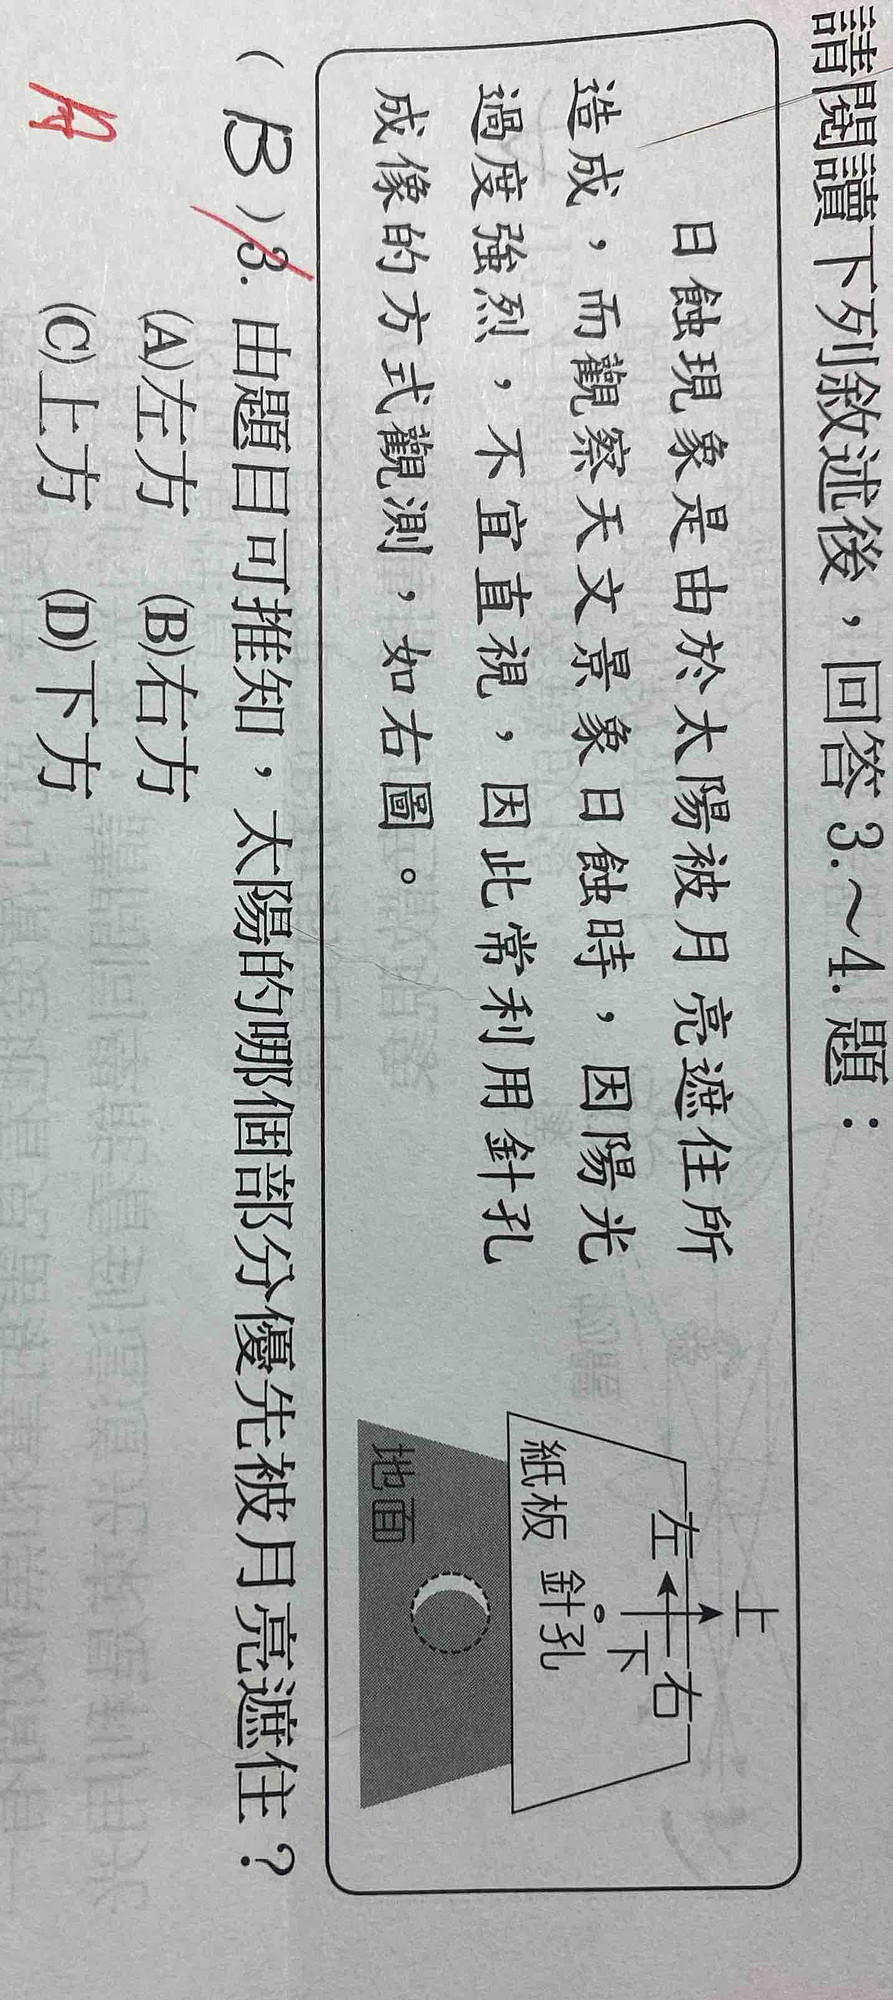 請閱讀下列敘述後，回答 3.～4. 題：
日蝕現象是由於太陽被月亮遮住所
造成，而觀察天文景象日蝕時，因陽光
過度強烈，不宜直視，因此常利用針孔
成像的方式觀測，如右圖。
上
左 右
下
針孔
紙板
地面
( B )3. 由題目可推知，太陽的哪個部分優先被月亮遮住？
(A)左方 (B)右方
(C)上方 (D)下方
A